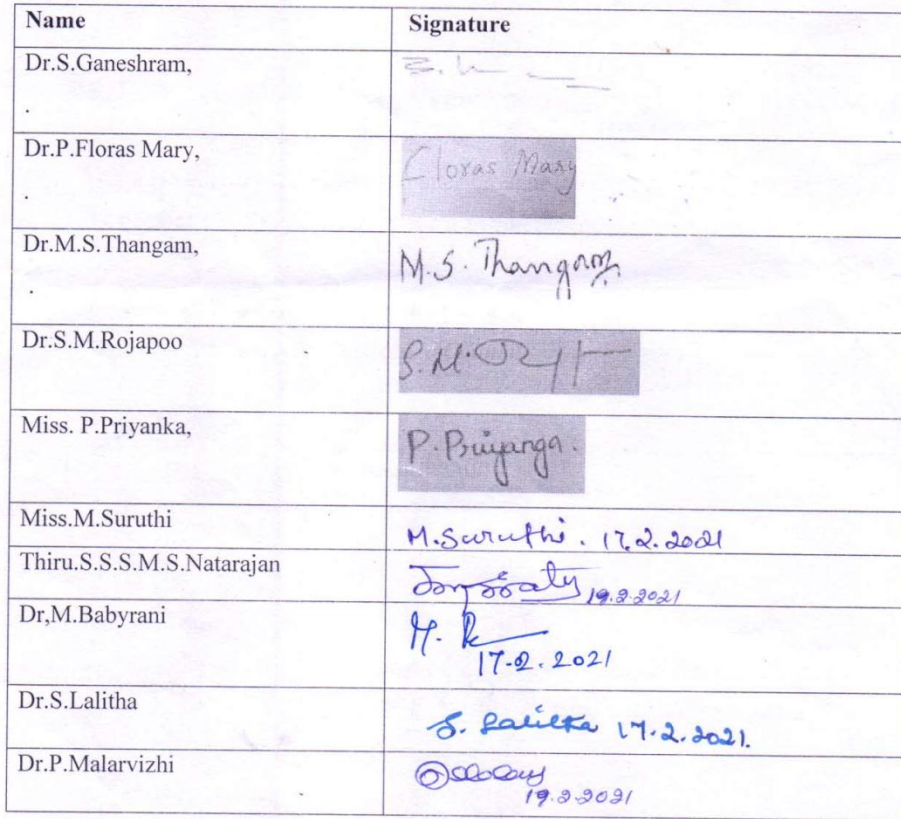 Name Signature
Dr.S.Ganeshram,
.
Dr.P.Floras Mary, Cloras Mary
.
Dr.M.S.Thangam, M.S. Thangam
.
Dr.S.M.Rojapoo S.M.
Miss. P.Priyanka, P.Priyanga.
Miss.M.Suruthi M.Suruthi. 17.2.2021
Thiru.S.S.S.M.S.Natarajan 19.2.2021
Dr,M.Babyrani M.
17.2.2021
Dr.S.Lalitha S. Lalitha 17.2.2021.
Dr.P.Malarvizhi
19.2.2021